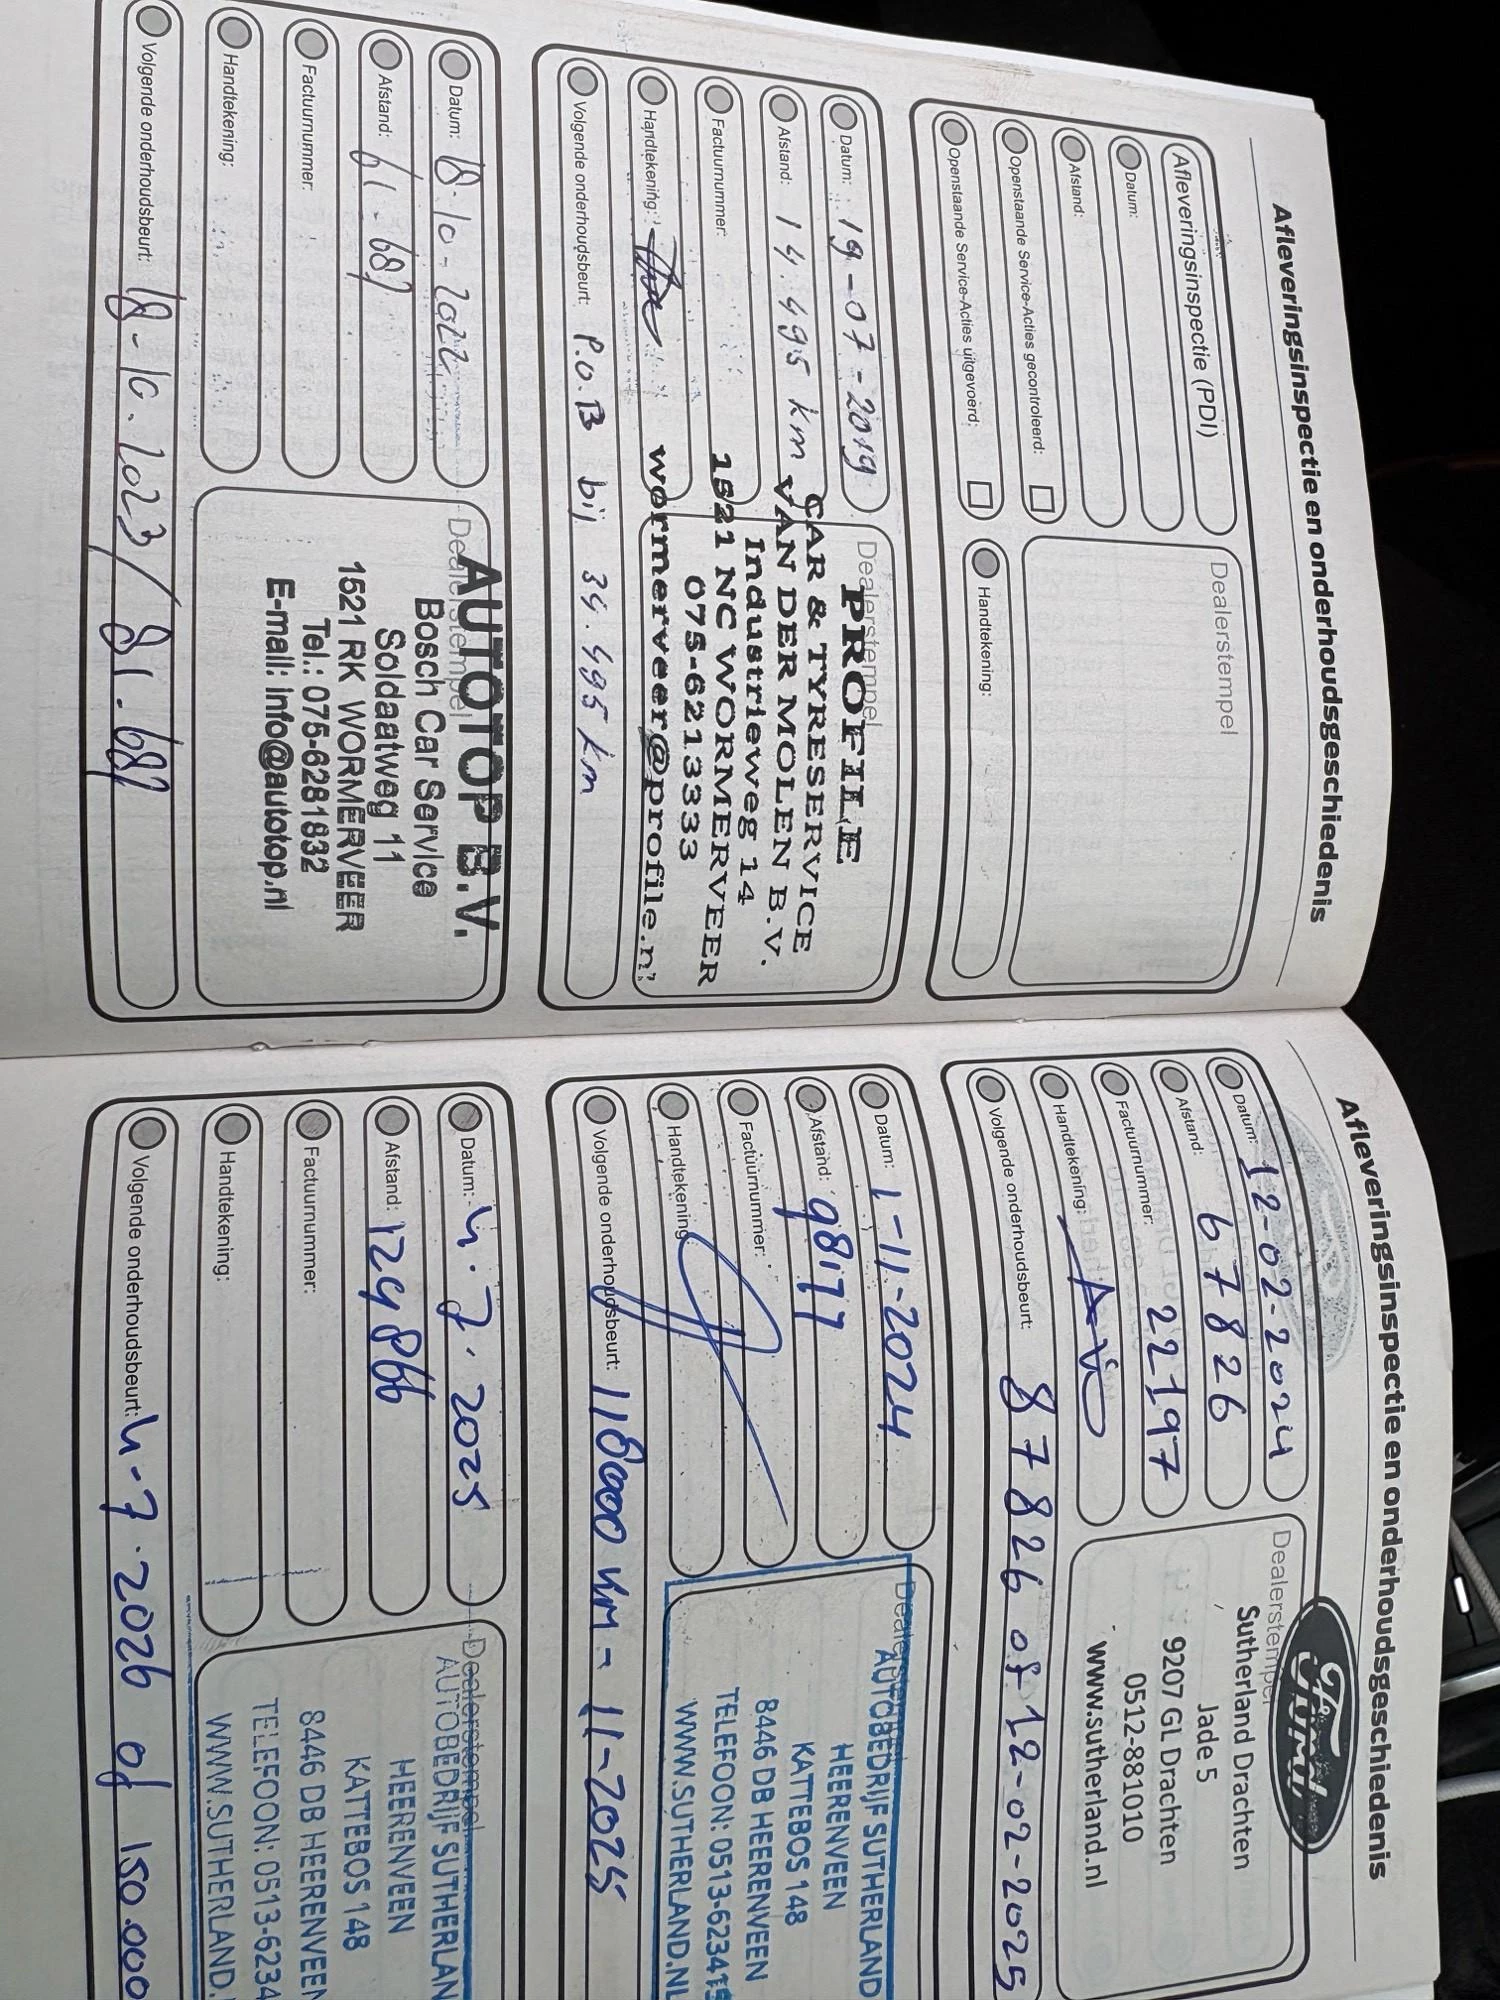 Afleveringsinspectie en onderhoudsgeschiedenis
Afleveringsinspectie (PDI)
Datum:
Afstand:
Openstaande Service-Acties gecontroleerd:
Openstaande Service-Acties uitgevoerd:
Dealerstempel
Handtekening:
Datum: 19-07-2019
Afstand: 14.495 km
Factuurnummer:
Handtekening:
Volgende onderhoudsbeurt: P.O.B bij 34.495 km
Dealerstempel
PROFILE
CAR & TYRESERVICE
VAN DER MOLEN B.V.
Industrieweg 14
1521 NC WORMERVEER
075-6213333
wormerveer@profile.nl
Datum: 18-10-2022
Afstand: 61.687
Factuurnummer:
Handtekening:
Volgende onderhoudsbeurt: 18-10.2023/81.687
Dealerstempel
AUTOTOP B.V.
Bosch Car Service
Soldaatweg 11
1521 RK WORMERVEER
Tel.: 075-6281832
E-mail: info@autotop.nl
Afleveringsinspectie en onderhoudsgeschiedenis
Datum: 12-02-2024
Afstand: 67826
Factuurnummer: 22197
Handtekening:
Volgende onderhoudsbeurt: 87826 of 12-02-2025
Dealerstempel
Ford
Sutherland Drachten
Jade 5
9207 GL Drachten
0512-881010
www.sutherland.nl
Datum: 1-11-2024
Afstand: 98177
Factuurnummer:
Handtekening:
Volgende onderhoudsbeurt: 118000 KM - 11-2025
Dealerstempel
AUTOBEDRIJF SUTHERLAND
HEERENVEEN
KATTEBOS 148
8446 DB HEERENVEEN
TELEFOON: 0513-623415
WWW.SUTHERLAND.NL
Datum: 4.7.2025
Afstand: 129866
Factuurnummer:
Handtekening:
Volgende onderhoudsbeurt: 4-7.2026 of 150.000
Dealerstempel
AUTOBEDRIJF SUTHERLAN
HEERENVEEN
KATTEBOS 148
8446 DB HEERENVEEN
TELEFOON: 0513-6234
WWW.SUTHERLAND.